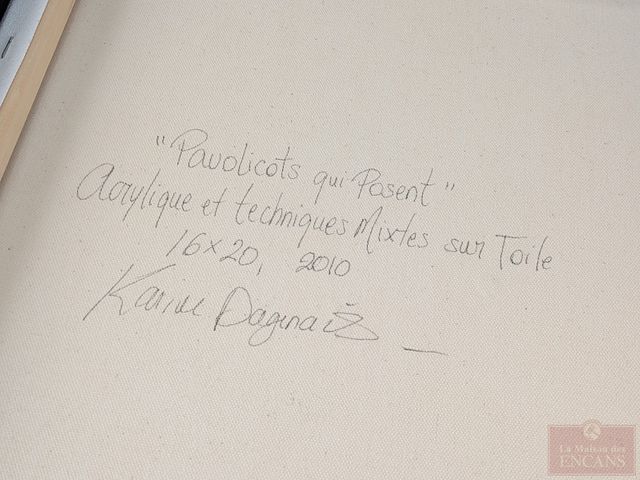 "Pavolicots qui Posent"
Acrylique et techniques Mixtes sur Toile
16x20, 2010
Karine Dagenais
La Maison des
ENCANS